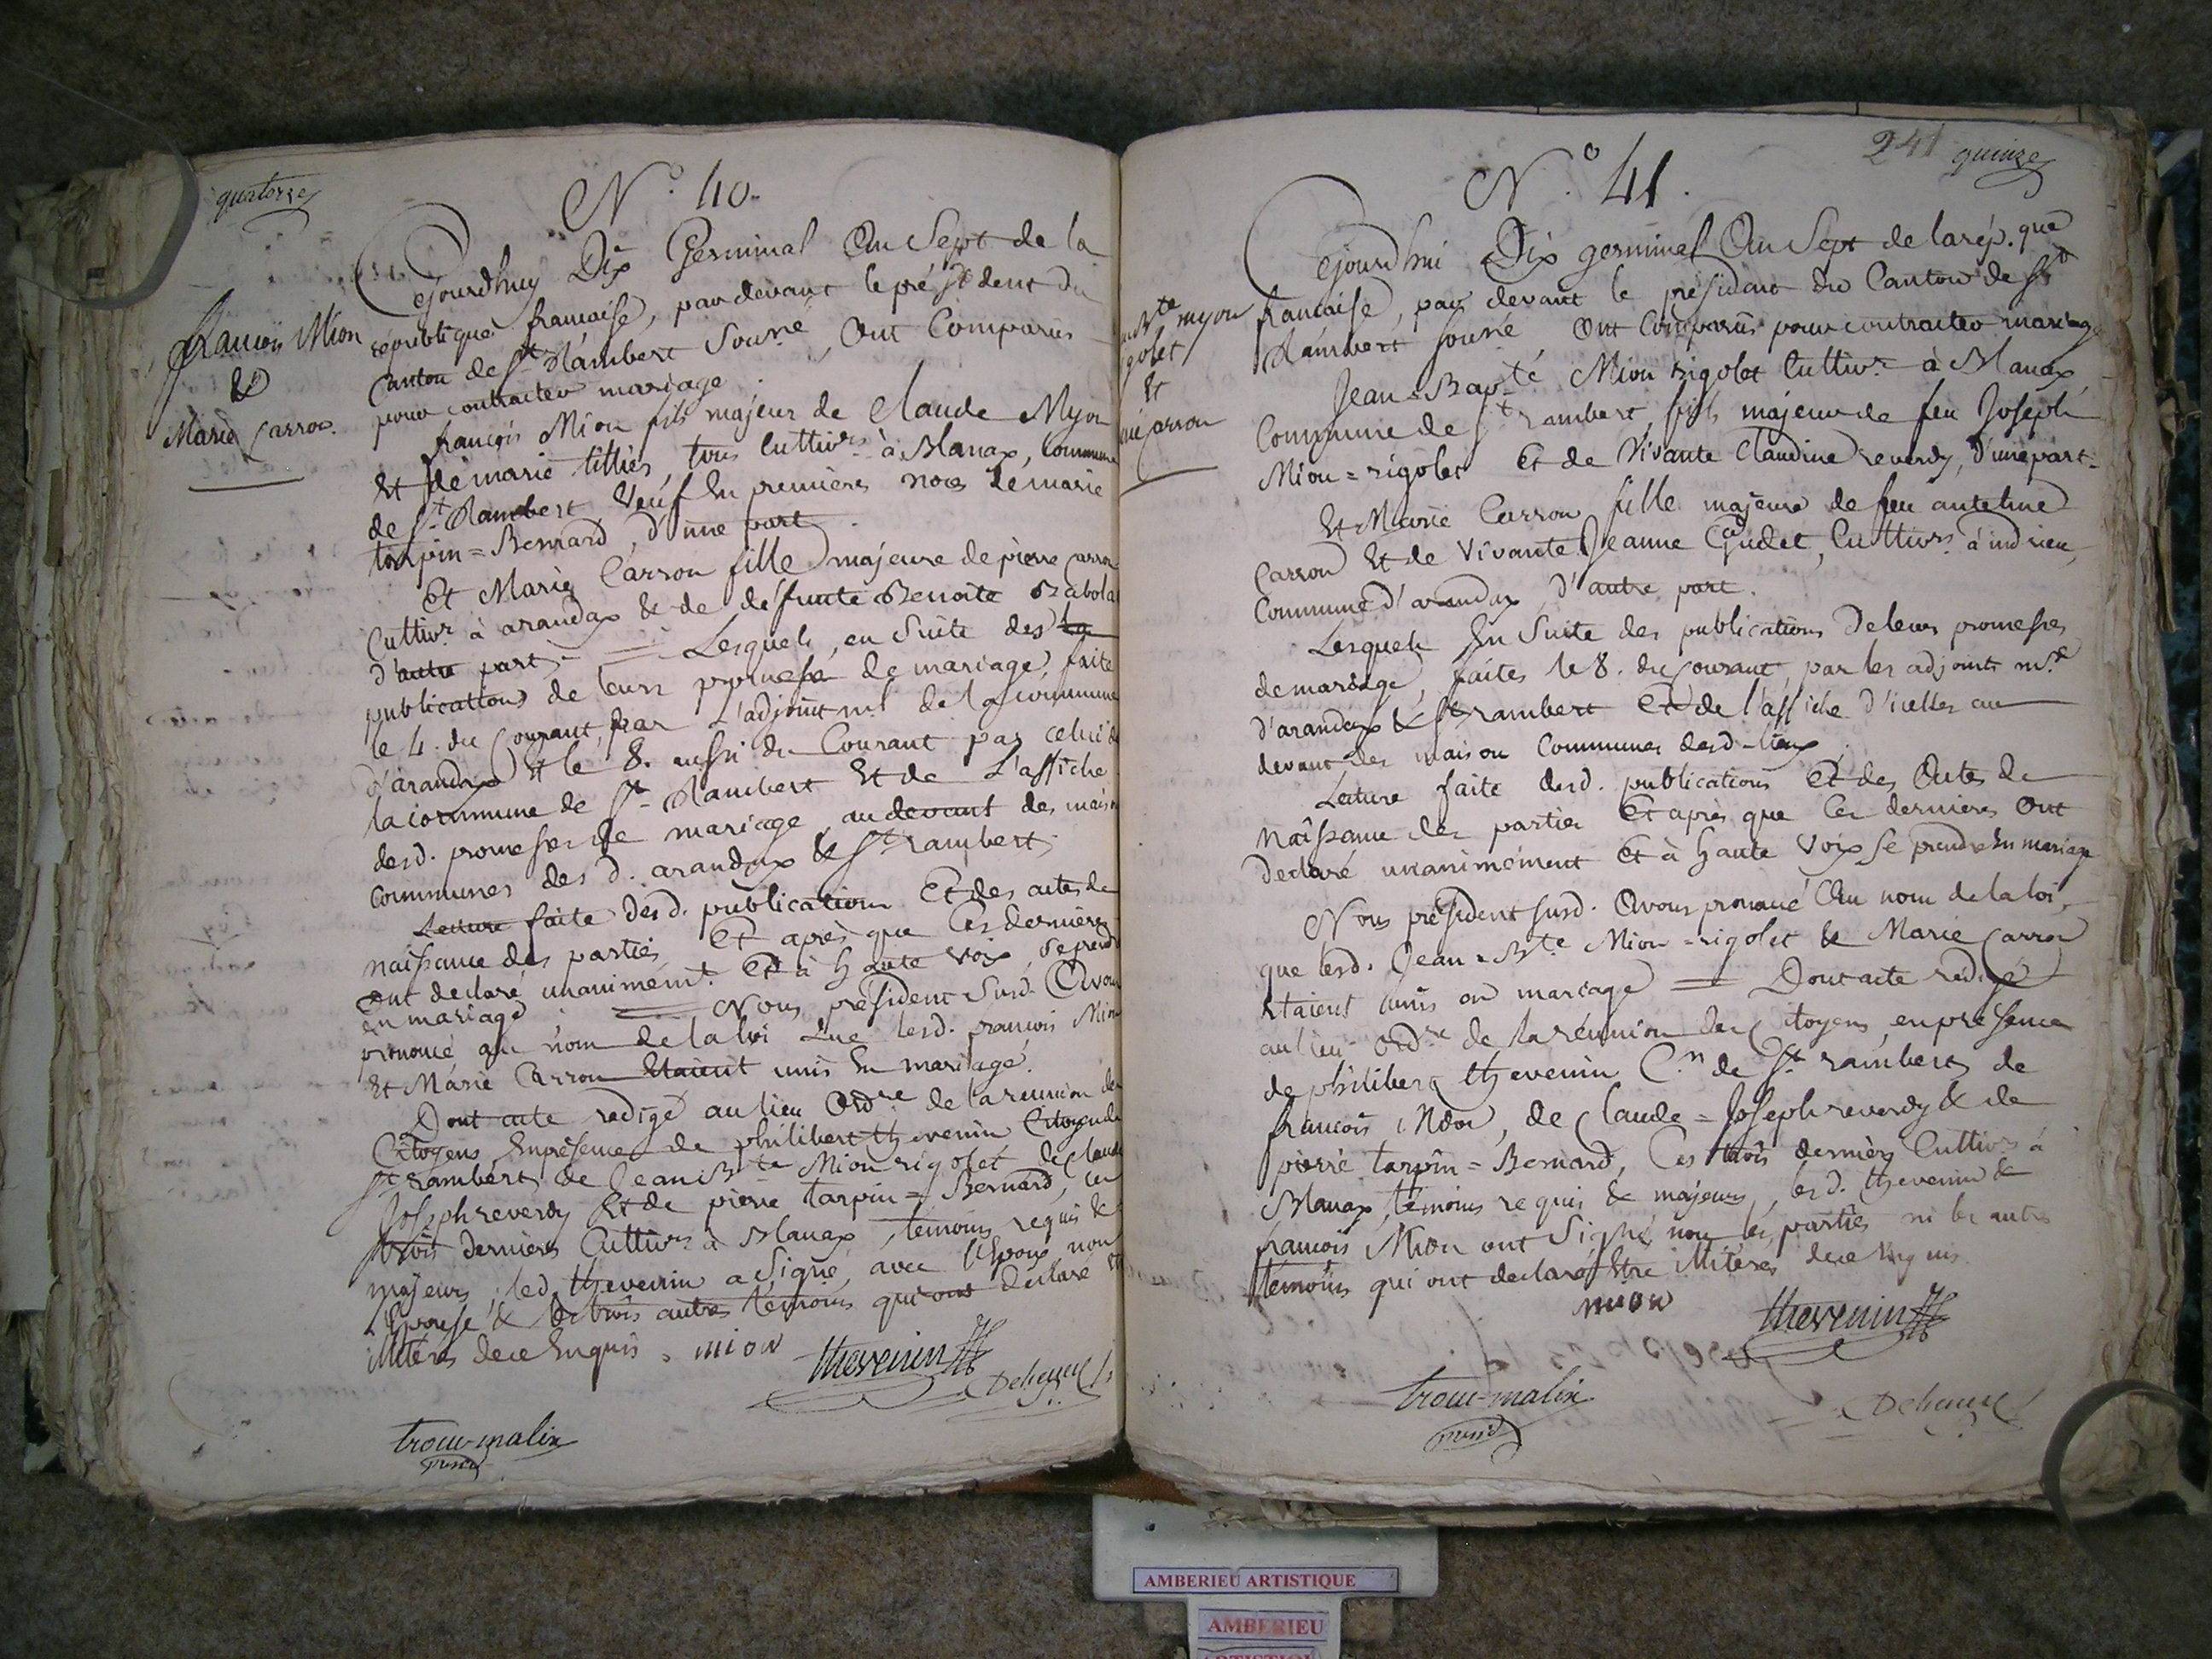 quatorze
N.° 40.
françois Mion
&
Marie Carron.
Cejourdhuy Dix Germinal An Sept de la
republique française, par devant le président du
Canton de St Rambert Sousné, Ont Comparus
pour contracter mariage.
françois Mion fils majeur de Claude Myon
Et de marie tillier, tous Cultivrs à Blanax, Commune
de St Rambert Veuf En premieres noces de marie
tarpin=Bernard, d'une part.
Et Marie Carron fille majeure de pierre Carron
Cultivr à arandax & de défunte Benoite Babolat
d'autre part = Lesquels, en Suite des la
publications de leurs promesse de mariage, faite
le 4. du Courant, par L'adjoint mal de la commune
d'arandax Et le 8. aussi du Courant par celui de
la commune de St Rambert Et de L'affiche
desd. promesses de mariage, audevant des maison
communes des d. arandax & St rambert.
Lecture faite desd. publications Et des actes de
naissance des parties, Et après que Ces dernieres
Ont declaré unanimemt Et à haute voix, Se prendre
En mariage. = Nous président Susd. Avons
prononcé au nom de la loi que lesd. françois Mion
Et Marie Carron Etaient unis En mariage.
Dont acte redigé au lieu Ordre de la reunion des
Citoyens, En présence de philibert thevenin Citoyen de
St rambert, de Jean Bte Mion rigolet, de Claude
Joseph reverdy Et de pierre tarpin=Bernard, ces
trois derniers Cultivrs à Blanax, témoins requis &
majeurs, led. thevenin a Signé, avec l'Epoux, non
l'Epouse & les trois autres témoins qui ont déclaré Etre
illiterés de ce Enquis. mion
thevenin
trocu-malix
presidt
241 quinze
N.° 41.
Bte myon
rigolet
&
Carron
Cejourdhui Dix germinal An Sept de la rép.que
francaise, par devant le président du Canton de St
Rambert sousné, Ont Comparus pour contracter mariage
Jean=Bapte Mion rigolet Cultivr à Blanax,
Commune de St rambert, fils majeur de feu Joseph
Mion=rigolet Et de Vivante Claudine reverdy, d'une part.
Et Marie Carron fille majeure de feu antelme
Carron Et de Vivante Jeanne Gudet, Cultivrs à indrieu,
Commune d'arandax, d'autre part.
Lesquels En Suite des publications de leurs promesses
de mariage, faites le 8. du Courant, par les adjoints m.
d'arandax & St rambert Et de l'affiche d'icelles au
devant des maison Communes desd. lieux.
Lecture faite desd. publications Et des Actes de
Naissance des parties Et après que Ces dernieres Ont
Declaré unanimément Et à haute Voix Se prendre En mariage
Nous président susd. Avons prononcé Au nom de la loi,
que lesd. Jean=Bte Mion=rigolet & Marie Carron
Etaient unis en mariage = Dont acte rédigé
au lieu Ordre de la réunion des Citoyens, en présence
de philibert thevenin C.n de St rambert, de
françois Mion, de Claude=Joseph reverdy & de
pierre tarpin=Bernard, Ces trois derniers Cultivrs à
Blanax, témoins requis & majeurs, les d. thevenin &
francois Mion ont Signé, non les parties ni les autres
témoins qui ont declaré Etre illiterés de ce Enquis.
mion
thevenin
trocu-malix
presidt
AMBERIEU ARTISTIQUE
AMBERIEU
ARTISTIQUE